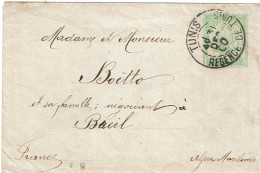 Madame et Monsieur
Boëtto
et sa famille, négociant à
Breil
France Alpes Maritimes
TUNIS
RÉGENCE DE TUNIS